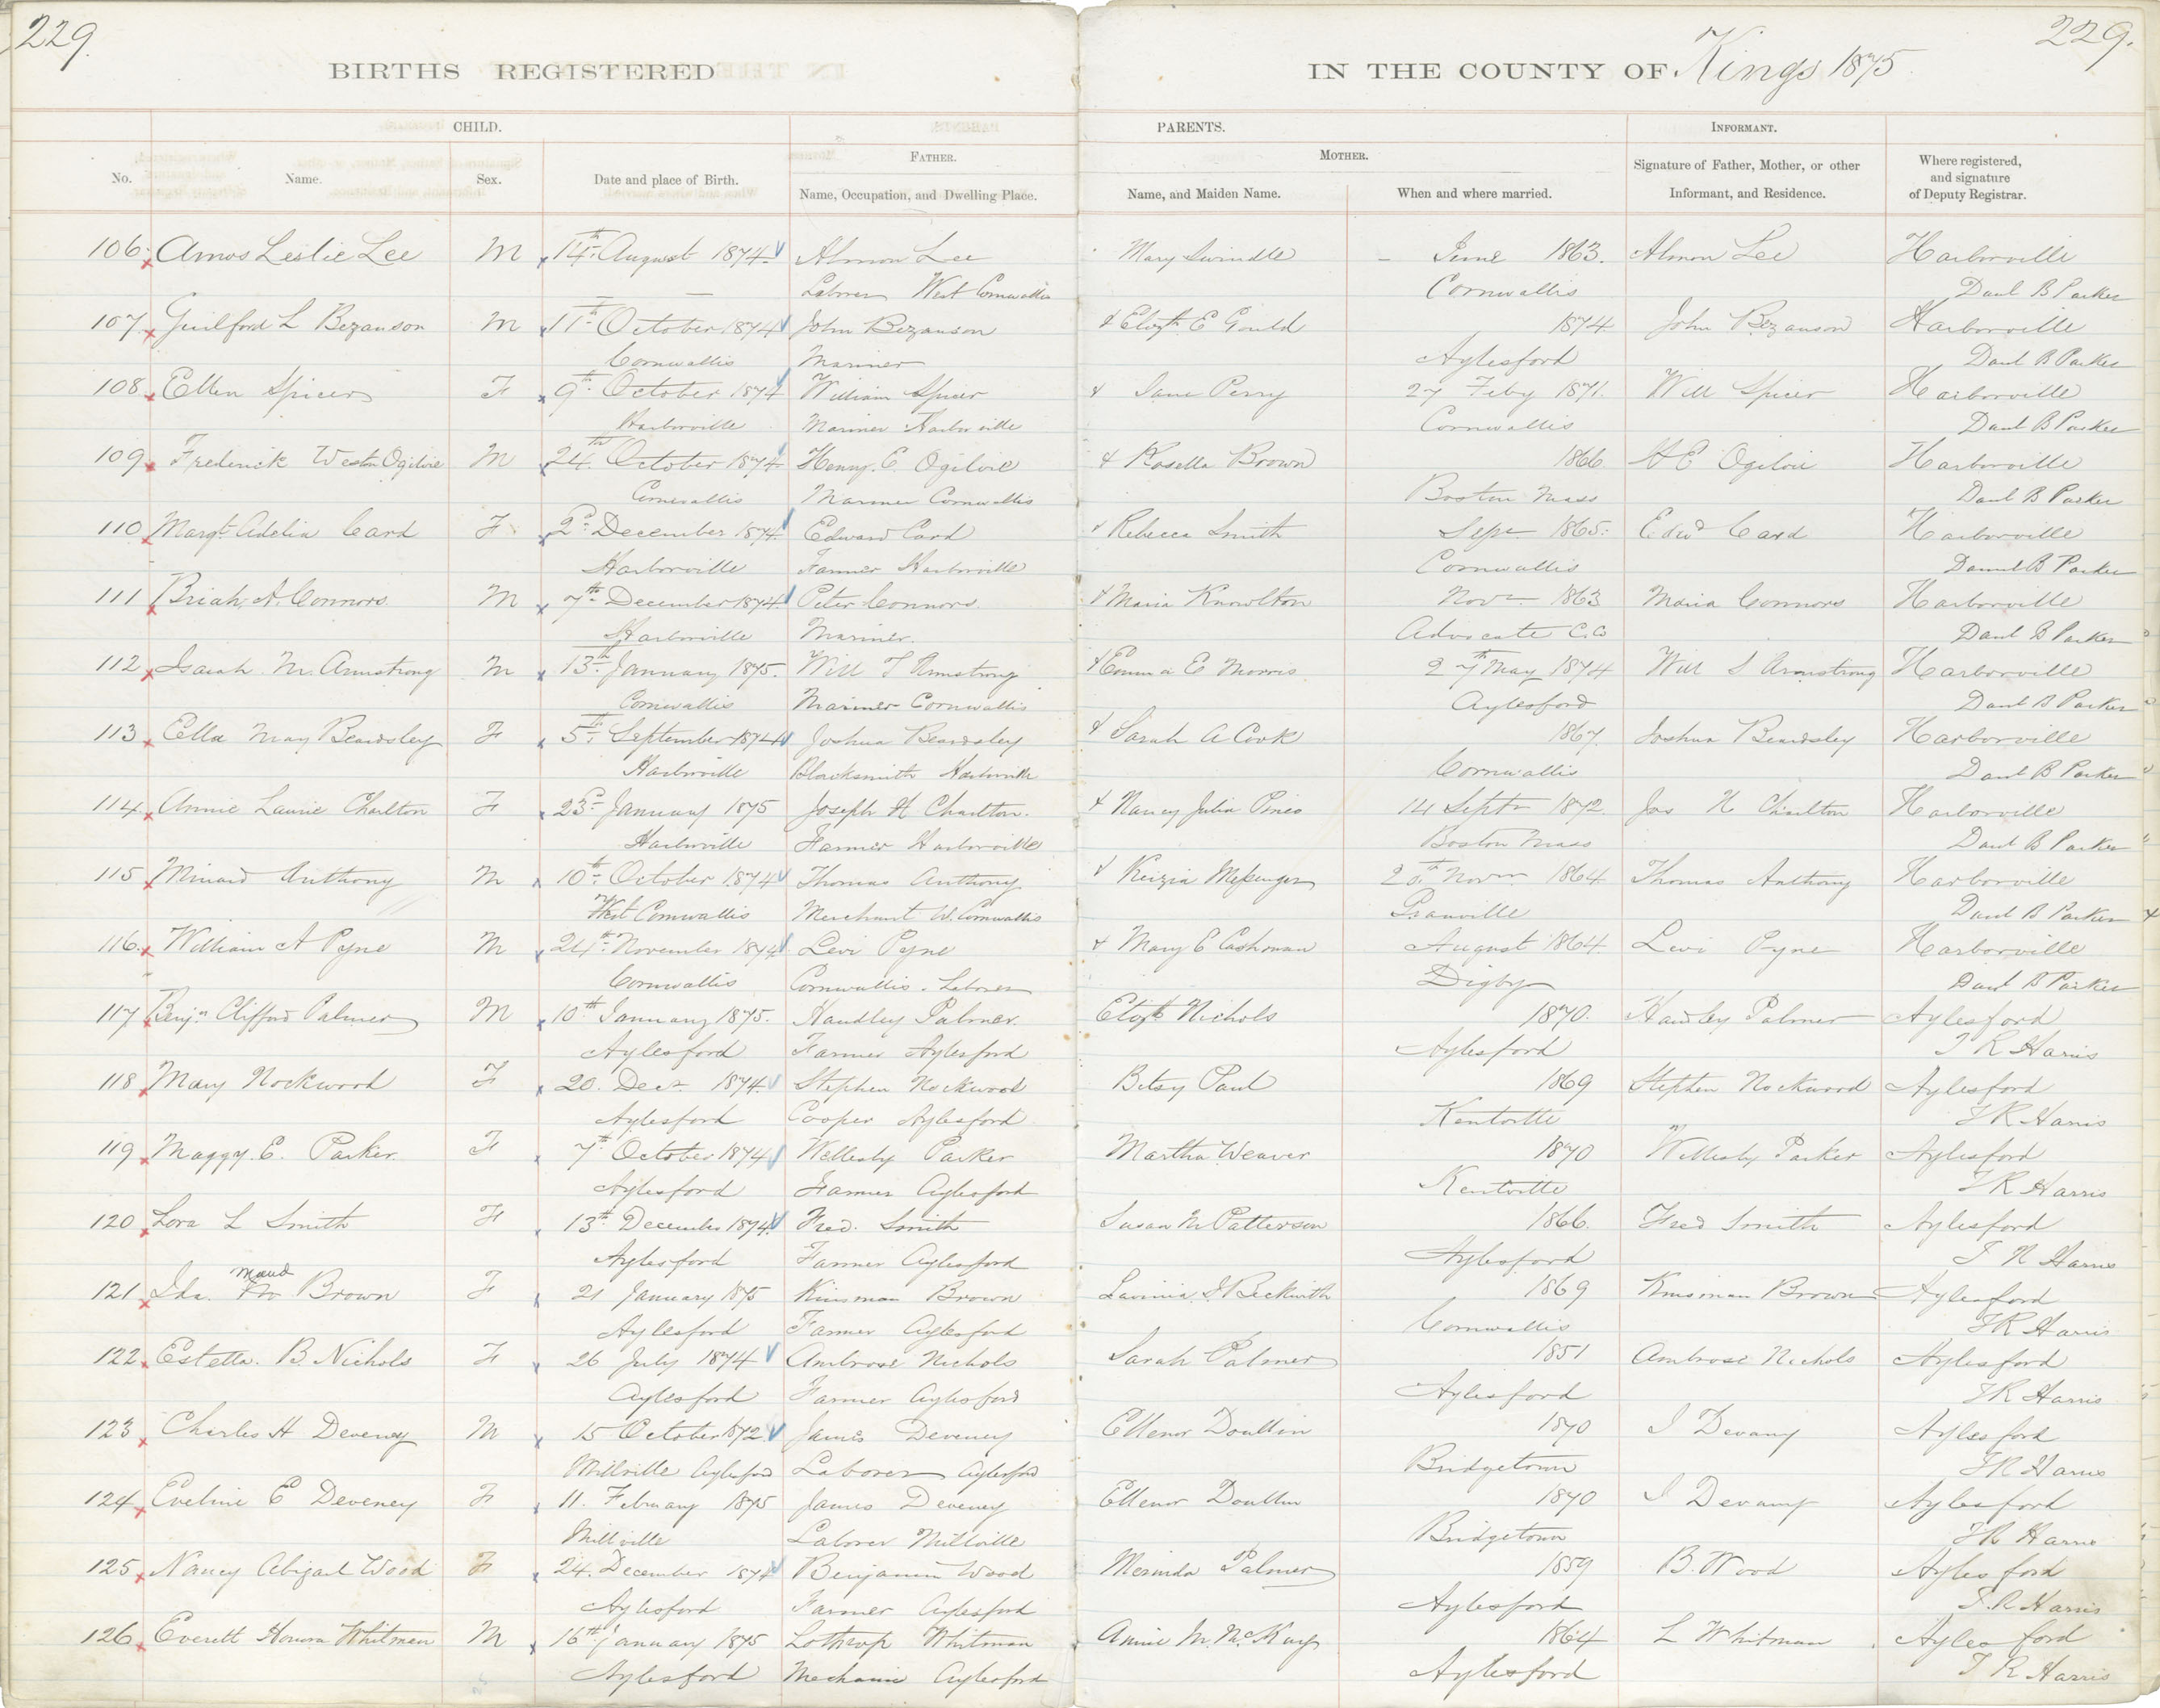 229. 229.
BIRTHS REGISTERED IN THE COUNTY OF Kings 1875
CHILD. PARENTS. INFORMANT.
FATHER. MOTHER.
No. Name. Sex. Date and place of Birth. Name, Occupation, and Dwelling Place. Name, and Maiden Name. When and where married. Signature of Father, Mother, or other Informant, and Residence. Where registered, and signature of Deputy Registrar.
106. Amos Leslie Lee M 14th August 1874 Almon Lee Mary Swindle – June 1863. Almon Lee Harborville
— — Laborer West Cornwallis Cornwallis Danl B Parker
107 Guilford L Bezanson M 11th October 1874 John Bezanson & Elizth E Gould 1874 John Bezanson Harborville
Cornwallis Mariner Aylesford Danl B Parker
108 Ellen Spicer F 9th October 1874 William Spicer & Jane Perry 27 Feby 1871. Will Spicer Harborville
Harborville Mariner Harborville Cornwallis Danl B Parker
109 Frederick Weston Ogilvie M 24th October 1874 Henry. E. Ogilvie & Rosella Brown 1866 H E Ogilvie Harborville
Cornwallis Mariner Cornwallis Boston Mass Danl B Parker
110 Margt Adelia Card F 2d December 1874 Edward Card & Rebecca Smith Sept 1865. Edwd Card Harborville
Harborville Farmer Harborville Cornwallis Daniel B Parker
111 Briah A. Connors M 7th December 1874 Peter Connors. & Maria Knowlton Novr 1863 Maria Connors Harborville
Harborville Mariner. Advocate C. Co Danl B Parker
112 Isaiah M. Armstrong M 13th January 1875. Will T Armstrong & Emma E Morris 27th May 1874 Will S Armstrong Harborville
Cornwallis Mariner Cornwallis Aylesford Danl B Parker
113 Ella May Beardsley F 5th September 1874 Joshua Beardsley & Sarah A Cook 1867. Joshua Beardsley Harborville
Harborville Blacksmith Harborville Cornwallis Danl B Parker
114 Annie Laurie Charlton F 23d January 1875 Joseph H Charlton. & Nancy Julia Pineo 14 Septr 1872 Jos H Charlton Harborville
Harborville Farmer Harborville Boston Mass Danl B Parker
115 Minard Anthony M 10th October 1874 Thomas Anthony & Keizia Messenger 20th Novr 1864 Thomas Anthony Harborville
West Cornwallis Merchant W. Cornwallis Granville Danl B Parker
116. William A Pyne M 24th November 1874 Levi Pyne & Mary E Cashman August 1864. Levi Pyne Harborville
Cornwallis Cornwallis. Laborer Digby Danl B Parker
117 Benjn Clifford Palmer M 10th January 1875. Handley Palmer. Elizth Nichols 1870. Handley Palmer Aylesford
Aylesford Farmer Aylesford Aylesford T R Harris
118 Mary Nockwood F 20. Decr 1874. Stephen Nockwood Betsy Paul 1869 Stephen Nockwood Aylesford
Aylesford Cooper Aylesford Kentville T R Harris
119 Maggy. E. Parker. F 7th October 1874 Wellesly Parker Martha Weaver 1870 Wellesly Parker Aylesford
Aylesford Farmer Aylesford Kentville T R Harris
120 Lora L Smith F 13th December 1874. Fred. Smith Susan M Patterson 1866. Fred Smith Aylesford
Aylesford Farmer Aylesford Aylesford T R Harris
121 Ida. Maud Brown F 21 January 1875 Kinsman Brown Lavinia S Beckwith 1869 Kinsman Brown Aylesford
Aylesford Farmer Aylesford Cornwallis T R Harris
122 Estella. B. Nichols F 26 July 1874 Ambrose Nichols Sarah Palmer 1851 Ambrose Nichols Aylesford
Aylesford Farmer Aylesford Aylesford T R Harris
123 Charles H Deveney M 15 October 1872. James Deveney Ellenor Doullin 1870 J Devany Aylesford
Millville Aylesford Laborer Aylesford Bridgetown T R Harris
124 Eveline E Deveney F 11. February 1875 James Deveney Ellenor Doullin 1870 J Devany Aylesford
Millville Laborer Millville Bridgetown T R Harris
125 Nancy Abigail Wood F 24. December 1874 Benjamin Wood Merinda Palmer 1859 B. Wood Aylesford
Aylesford Farmer Aylesford Aylesford T. R Harris
126 Everett Honora Whitman M 16th January 1875 Lothrop Whitman Annie M. McKay 1864 L Whitman Aylesford
Aylesford Mechanic Aylesford Aylesford T R Harris